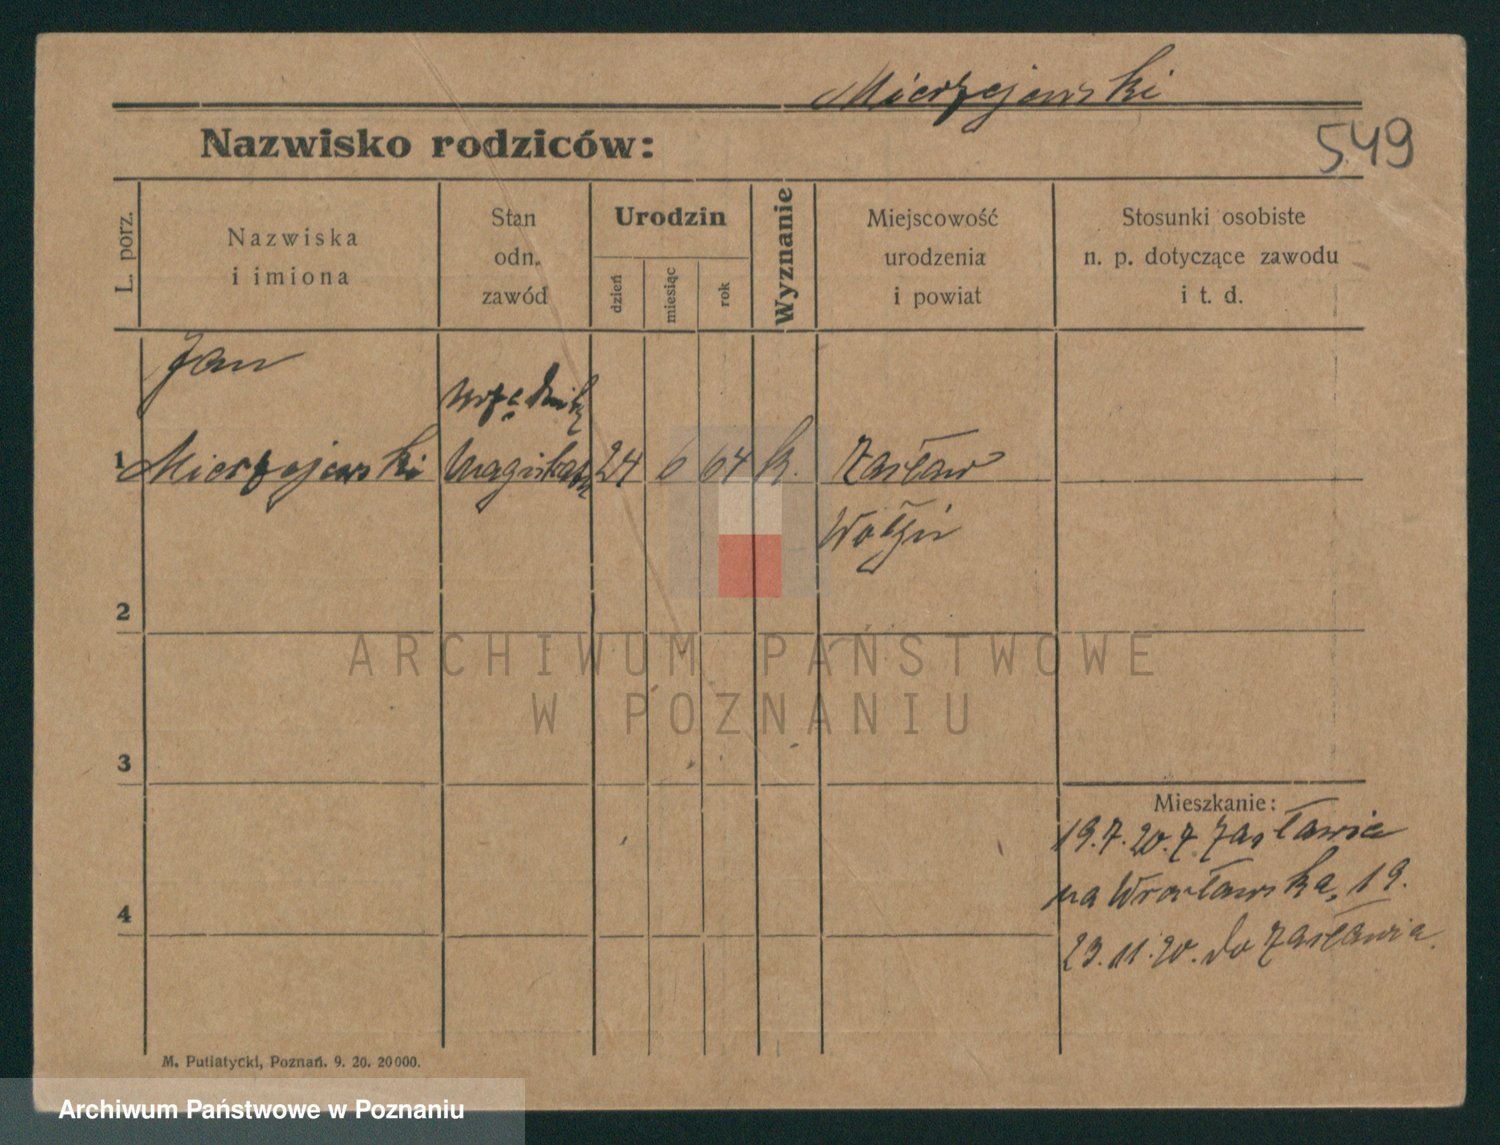 Mierzejewski
Nazwisko rodziców:
549
L. porz.
Nazwiska
i imiona
Stan
odn.
zawód
Urodzin
dzień
miesiąc
rok
Wyznanie
Miejscowość
urodzenia
i powiat
Stosunki osobiste
n. p. dotyczące zawodu
i t. d.
Jan
urzędnik
1 Mierzejewski 24 6 64 k. Zasław
Wołyń
2
ARCHIWUM PAŃSTWOWE
W POZNANIU
3
Mieszkanie:
19.7.20. z Zasławia
na Wrocławska, 19.
4
23.11.20. do Zasławia.
M. Putiatycki, Poznań. 9. 20. 20000.
Archiwum Państwowe w Poznaniu